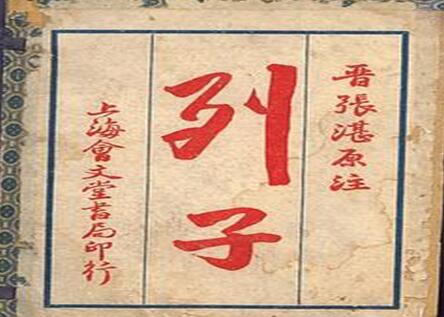 晋張湛原注
列子
上海會文堂書局印行